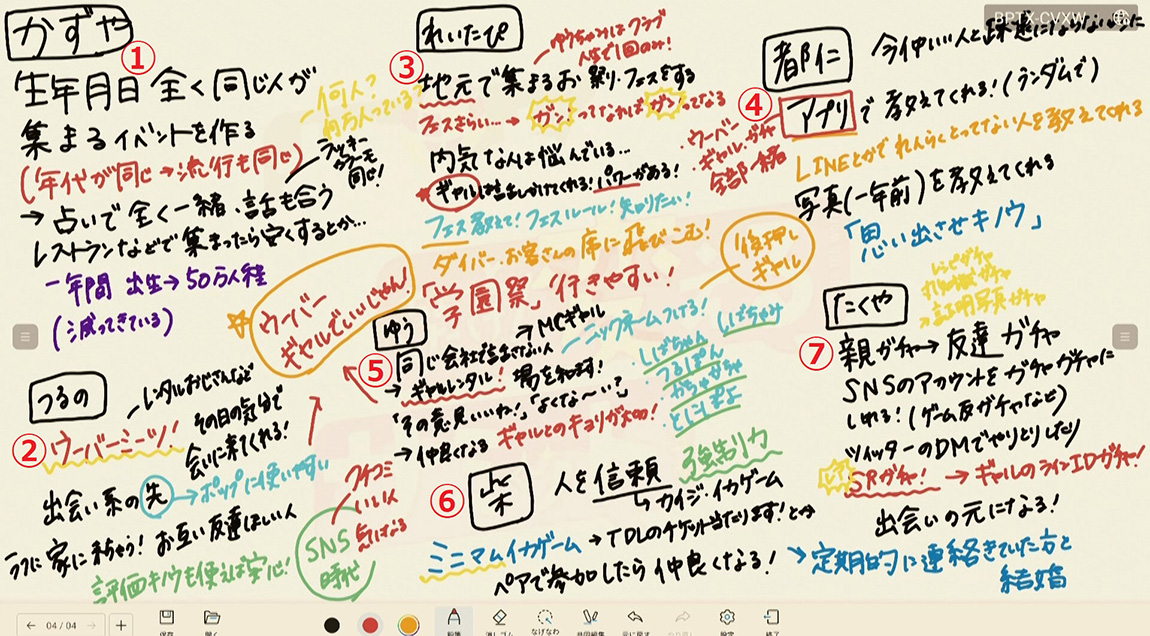 かずや
①
生年月日全く同じ人が
集まるイベントを作る
何人?
何万人っている?
(年代が同じ→流行も同じ)
ラッキー
カラーも
同じ!
→占いで全く一緒、話も合う
レストランなどで集まったら安くするとか…
一年間 出生→50万人程
(減ってきている)
ウーバー
ギャルでいいじゃん!
つるの
②
ウーバーミーツ!
レンタルおじさんなど
その日の気分で
会いに来てくれる!
出会い系の先→ポップに使いやすい
ラフに家に来ちゃう!お互い友達ほしい人
評価キノウも使えば安心!
SNS
時代
クチコミ
いい人
気になる
れいたぴ
③
ゆうちゃみはクラブ
人生で1回のみ!
地元で集まるお祭り・フェスをする
フェスきらい…→ガンってなればガンってなる
内気な人は悩んでいる…
ギャルは話しかけてくれる!パワーがある!
フェス教えて!フェスルール!知りたい!
ダイバー・お客さんの席に飛びこむ!
「学園祭」行きやすい!
後押し
ギャル
・ウーバー
・ギャル・ガチャ
全部一緒
都仁
④
今仲いい人と疎遠にならないように
アプリで教えてくれる!(ランダムで)
LINEとかでれんらくとってない人を教えてくれる
写真(一年前)を教えてくれる
「思い出させキノウ」
ゆう
⑤
同じ会社で話さない人
→MCギャル
→ギャルレンタル!場を和ます!
「その意見いいね!」「よくな〜い?」
→仲良くなる ギャルとのキョリが大切!
ニックネームつける!
しばちゃん
つるぽん
かちゃかちゃ
とにぽよ
しばちゃみ
柴
⑥
人を信頼
強制力
↳カイジ・イカゲーム
ミニマムイカゲーム→TDLのチケット当たります!とか
ペアで参加したら仲良くなる!
たくや
⑦
レシピガチャ
証明写真ガチャ
親ガチャ→友達ガチャ
SNSのアカウントをガチャガチャに
しれる!(ゲーム友ガチャなど)
ツイッターのDMでやりとりしたり
SRガチャ!→ギャルのラインIDガチャ!
出会いの元になる!
→定期的に連絡きていた方と
結婚
BPTX-CVXW
04 / 04
保存
開く
消しゴム
なげなわ
共同編集
元に戻す
やり直し
設定
終了